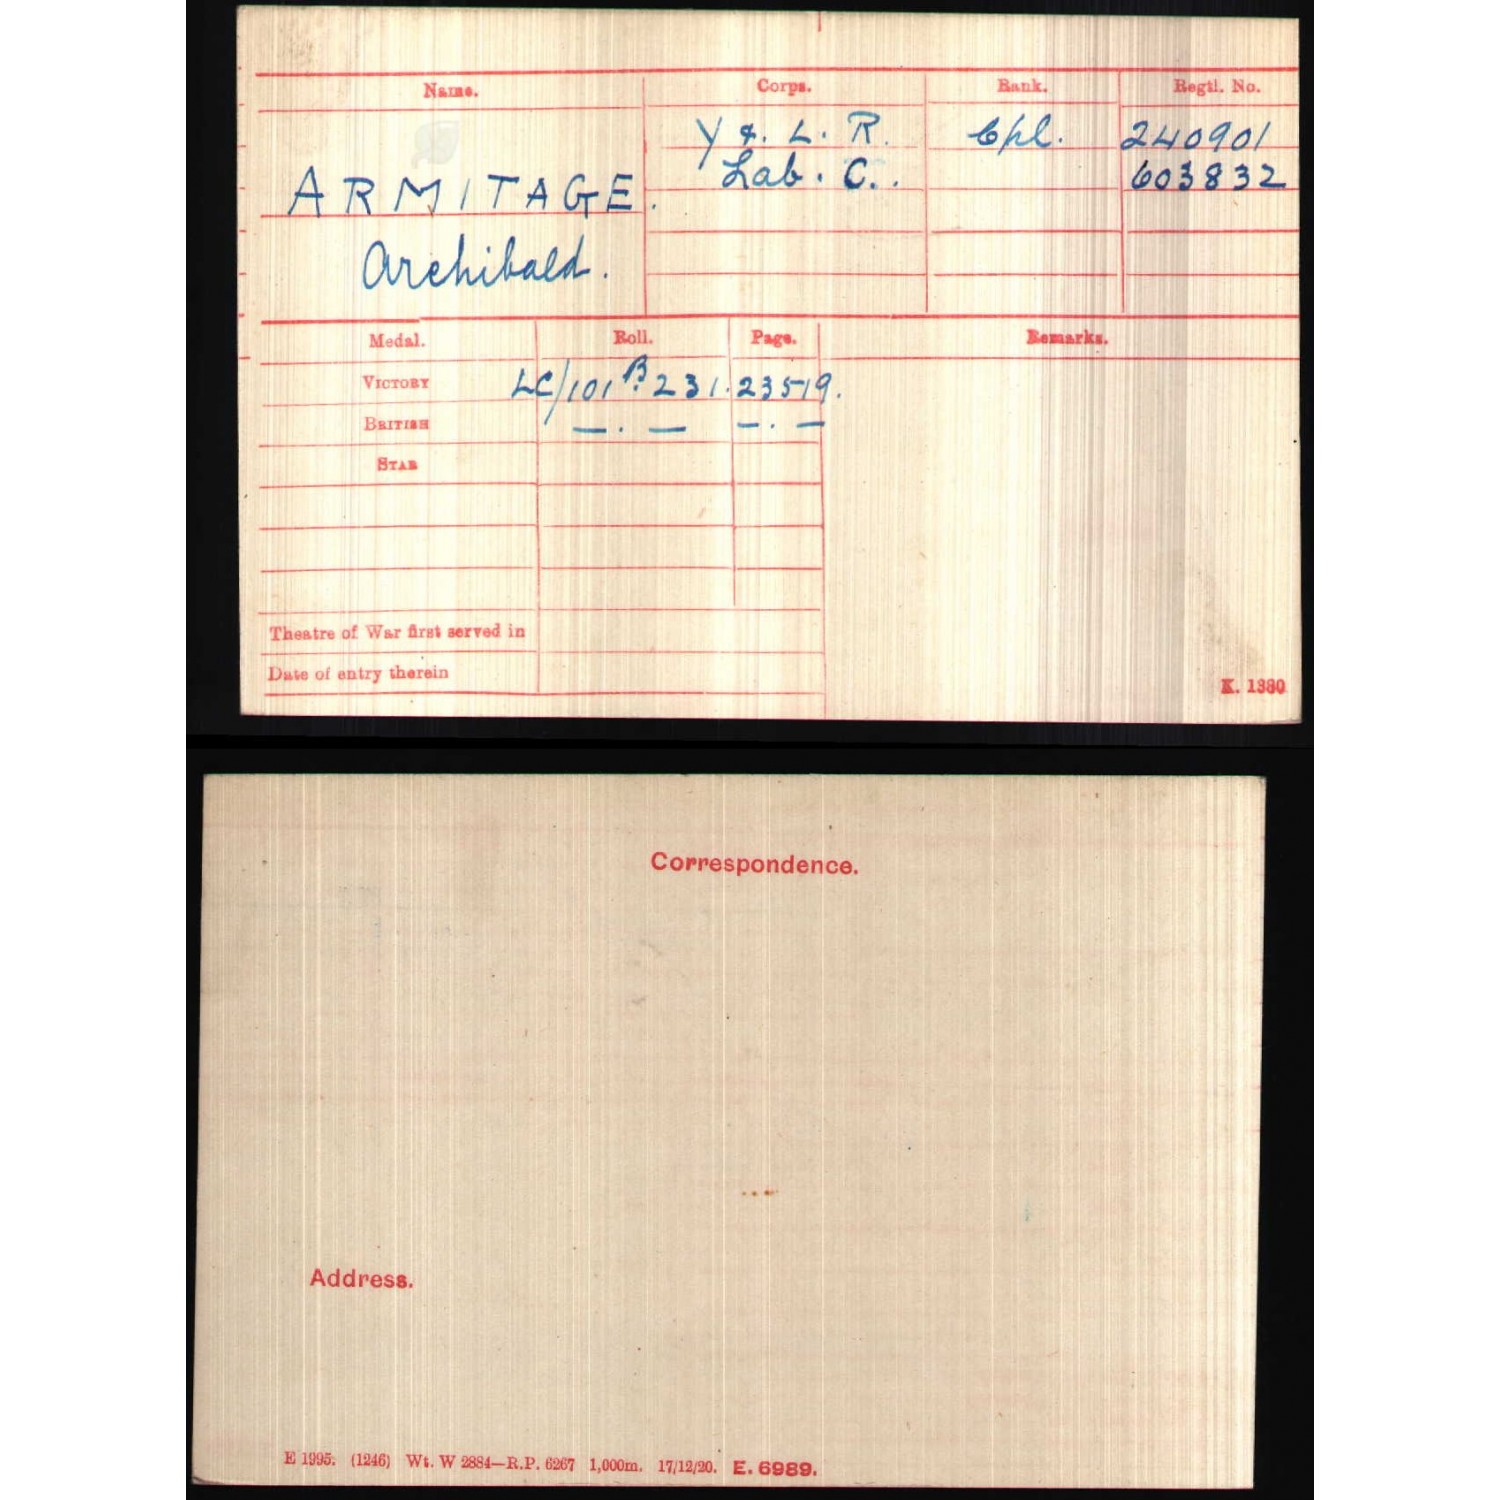 Name. Corps. Rank. Regtl. No.
Y &. L. R. Cpl. 240901
Lab. C.. 603832
ARMITAGE.
Archibald.
Medal. Roll. Page. Remarks.
VICTORY LC/101 B. 231. 23519.
BRITISH —. — —. —
STAR
Theatre of War first served in
Date of entry therein
K. 1380
Correspondence.
Address.
E 1995. (1246) Wt. W 2884—R.P. 6267 1,000m. 17/12/20. E. 6989.